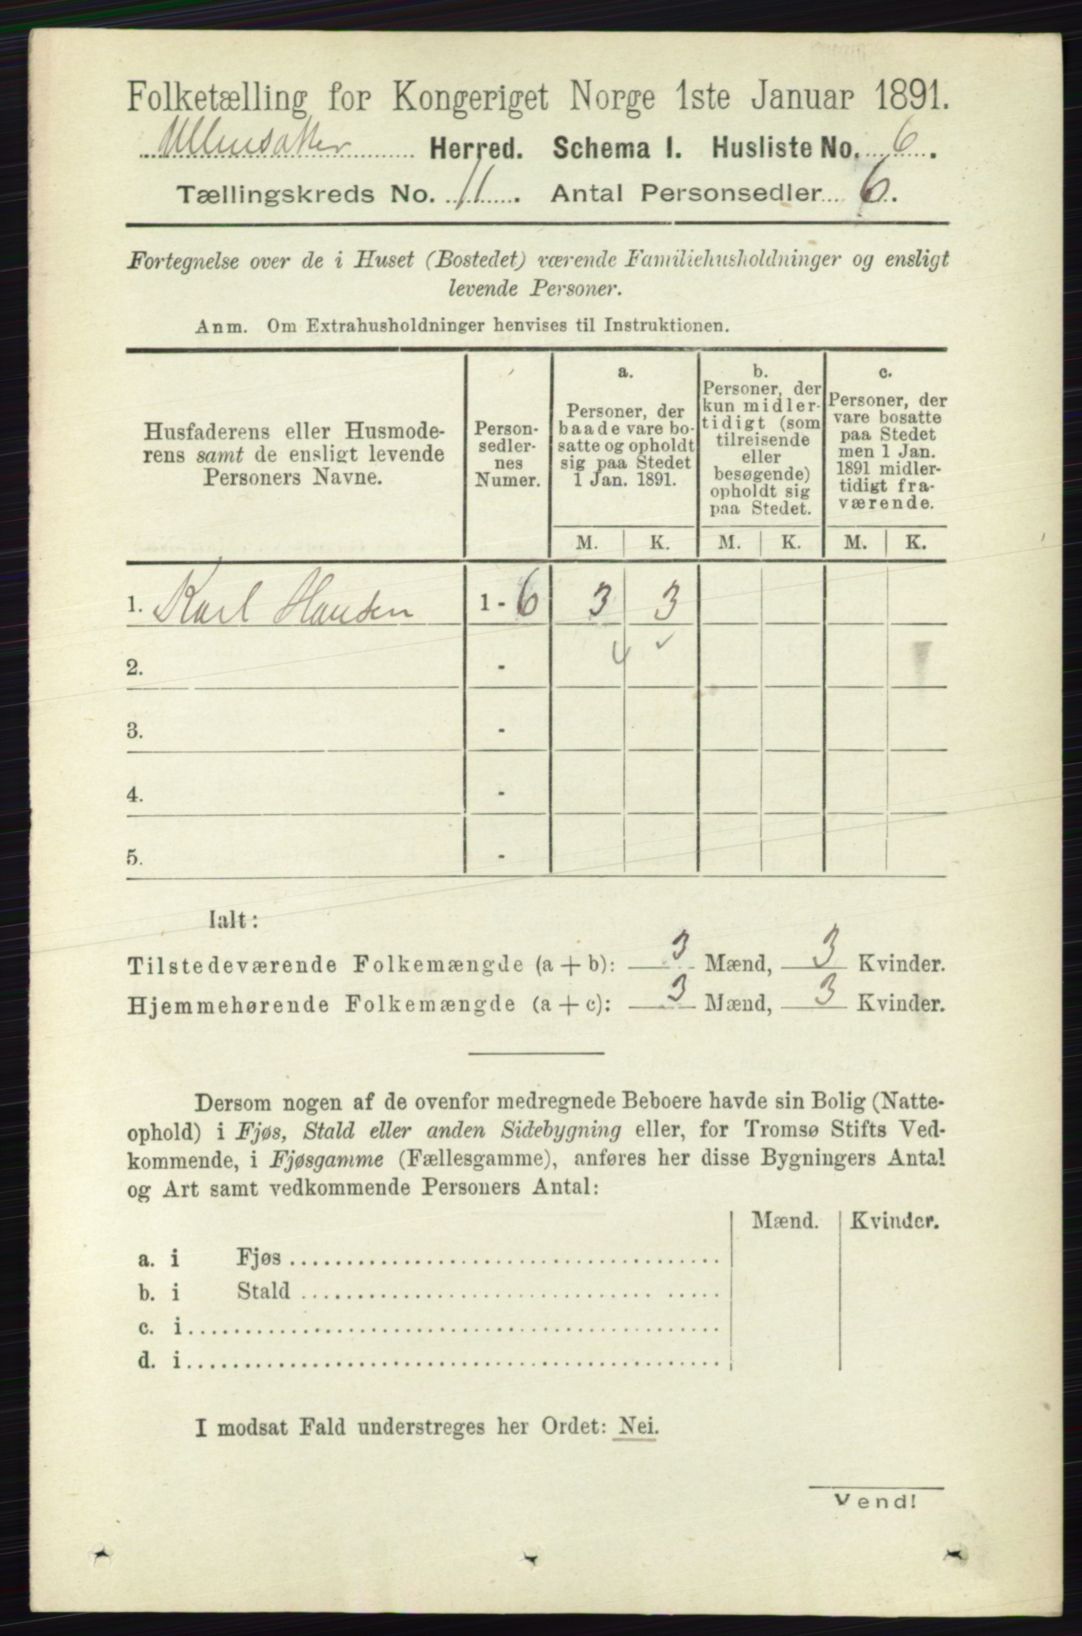 Folketælling for Kongeriget Norge 1ste Januar 1891.
Ullensaker Herred. Schema I. Husliste No. 6.
Tællingskreds No. 11. Antal Personsedler 6.
Fortegnelse over de i Huset (Bostedet) værende Familiehusholdninger og ensligt
levende Personer.
Anm. Om Extrahusholdninger henvises til Instruktionen.
Husfaderens eller Husmode-
rens samt de ensligt levende
Personers Navne.
Person-
sedler-
nes
Numer.
a.
Personer, der
baade vare bo-
satte og opholdt
sig paa Stedet
1 Jan. 1891.
b.
Personer, der
kun midler-
tidigt (som
tilreisende
eller
besøgende)
opholdt sig
paa Stedet.
c.
Personer, der
vare bosatte
paa Stedet
men 1 Jan.
1891 midler-
tidigt fra-
værende.
M. K. M. K. M. K.
1. Karl Hansen 1 - 6 3 3
2. -
3. -
4. -
5. -
Ialt:
Tilstedeværende Folkemængde (a + b): 3 Mænd, 3 Kvinder.
Hjemmehørende Folkemængde (a + c): 3 Mænd, 3 Kvinder.
Dersom nogen af de ovenfor medregnede Beboere havde sin Bolig (Natte-
ophold) i Fjøs, Stald eller anden Sidebygning eller, for Tromsø Stifts Ved-
kommende, i Fjøsgamme (Fællesgamme), anføres her disse Bygningers Antal
og Art samt vedkommende Personers Antal:
Mænd. Kvinder.
a. i Fjøs
b. i Stald
c. i
d. i
I modsat Fald understreges her Ordet: Nei.
Vend!